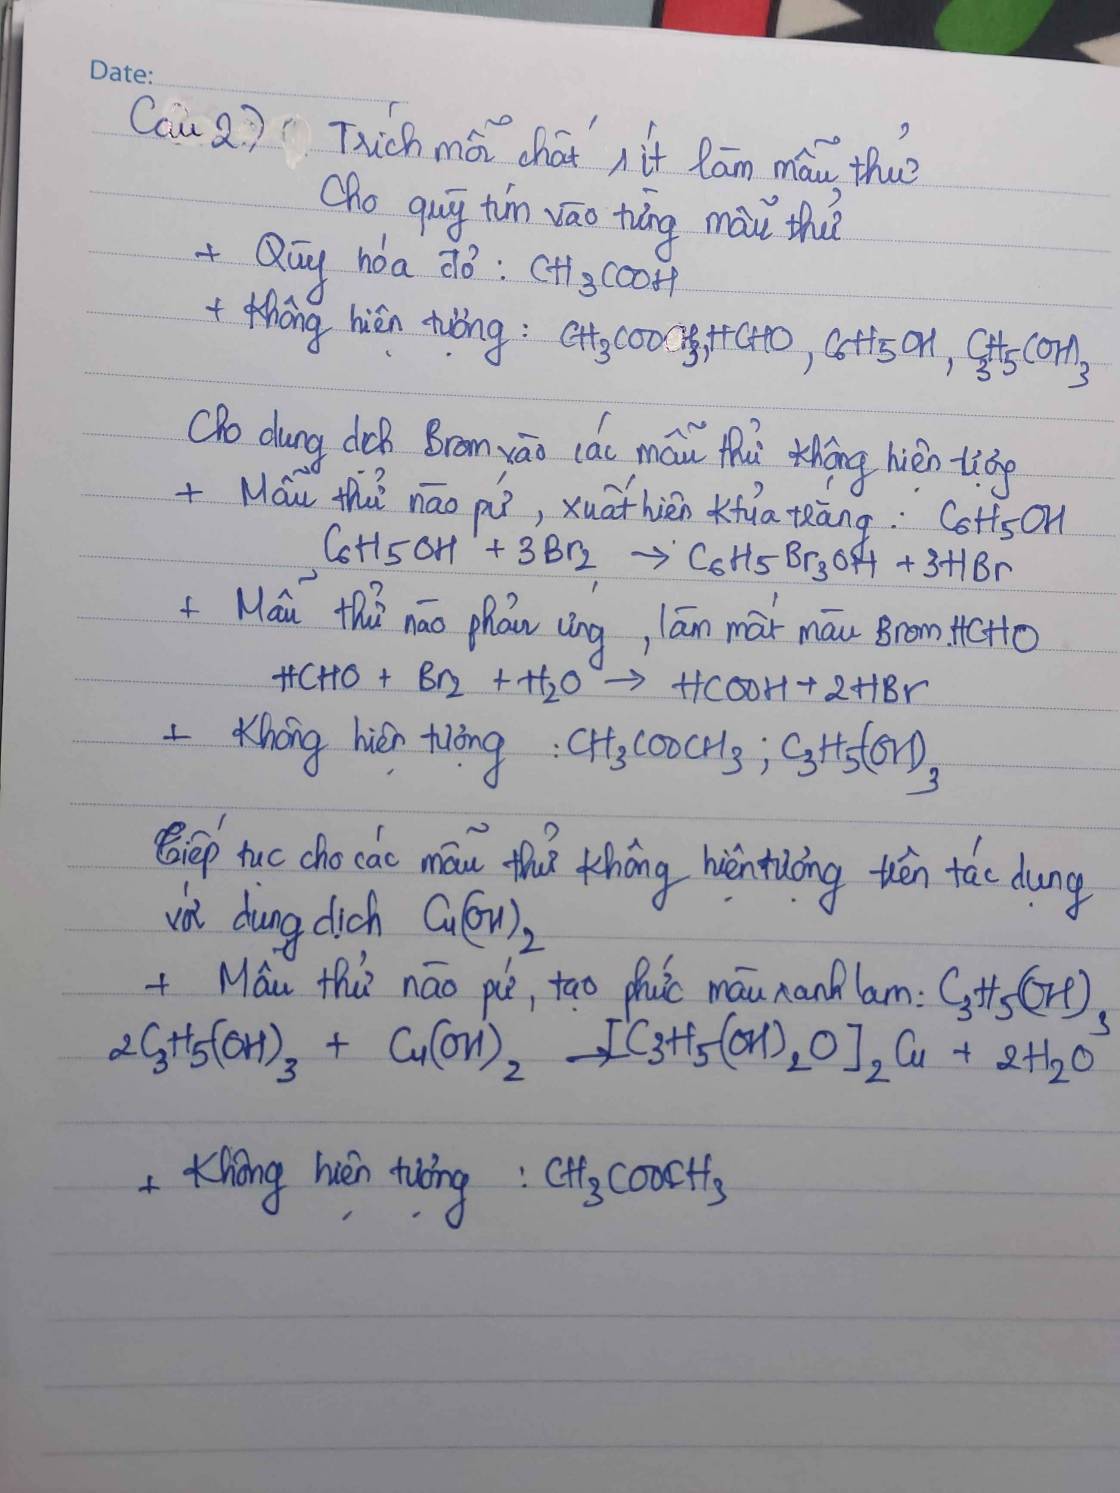 Date:
Câu 2) Trích mỗi chất 1 ít làm mẫu thử
Cho quỳ tím vào từng mẫu thử
+ Qùy hóa đỏ : CH3COOH
+ Không hiện tượng : CH3COOCH3, HCHO, C6H5OH, C3H5(OH)3
Cho dung dịch Brom vào các mẫu thử không hiện tượng
+ Mẫu thử nào pứ, xuất hiện ktủa trắng : C6H5OH
C6H5OH + 3Br2 → C6H5Br3OH + 3HBr
+ Mẫu thử nào phản ứng, làm mất màu Brom: HCHO
HCHO + Br2 + H2O → HCOOH + 2HBr
+ Không hiện tượng : CH3COOCH3 ; C3H5(OH)3
Tiếp tục cho các mẫu thử không hiện tượng trên tác dụng
với dung dịch Cu(OH)2
+ Mẫu thử nào pứ, tạo phức màu xanh lam : C3H5(OH)3
2C3H5(OH)3 + Cu(OH)2 → [C3H5(OH)2O]2Cu + 2H2O
+ Không hiện tượng : CH3COOCH3